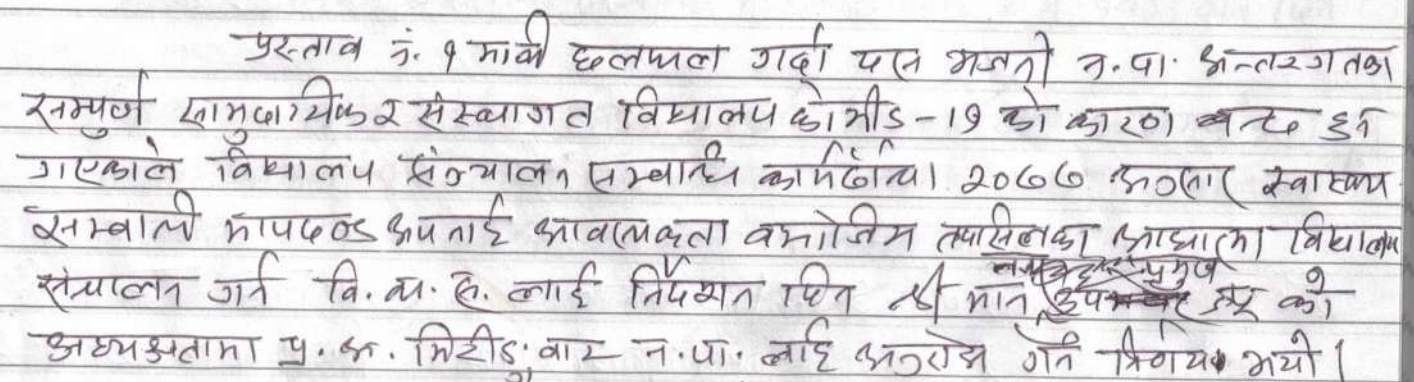 प्रस्ताव नं. १ माथी छलफल गर्दा यस भजनी न.पा. अन्तरगतका
सम्पुर्ण सामुदायिक र संस्थागत विद्यालय कोभीड-19 को कारण बन्द हुन
गएकाले विद्यालय संञ्चालन सम्बन्धि कार्यढाँचा 2077 अनुसार स्वास्थ्य
सम्बन्धी मापदण्ड अपनाई आवश्यकता बमोजिम तपसिलका आधारमा विद्यालय
संचालन गर्न वि.ब्य.स. लाई निर्देशन दिन श्री मान प्रमुख ज्यु को
अध्यक्षतामा प्र.अ. मिटीङ्ग बाट न.पा. लाई अनुरोध गर्ने निर्णय भयो।